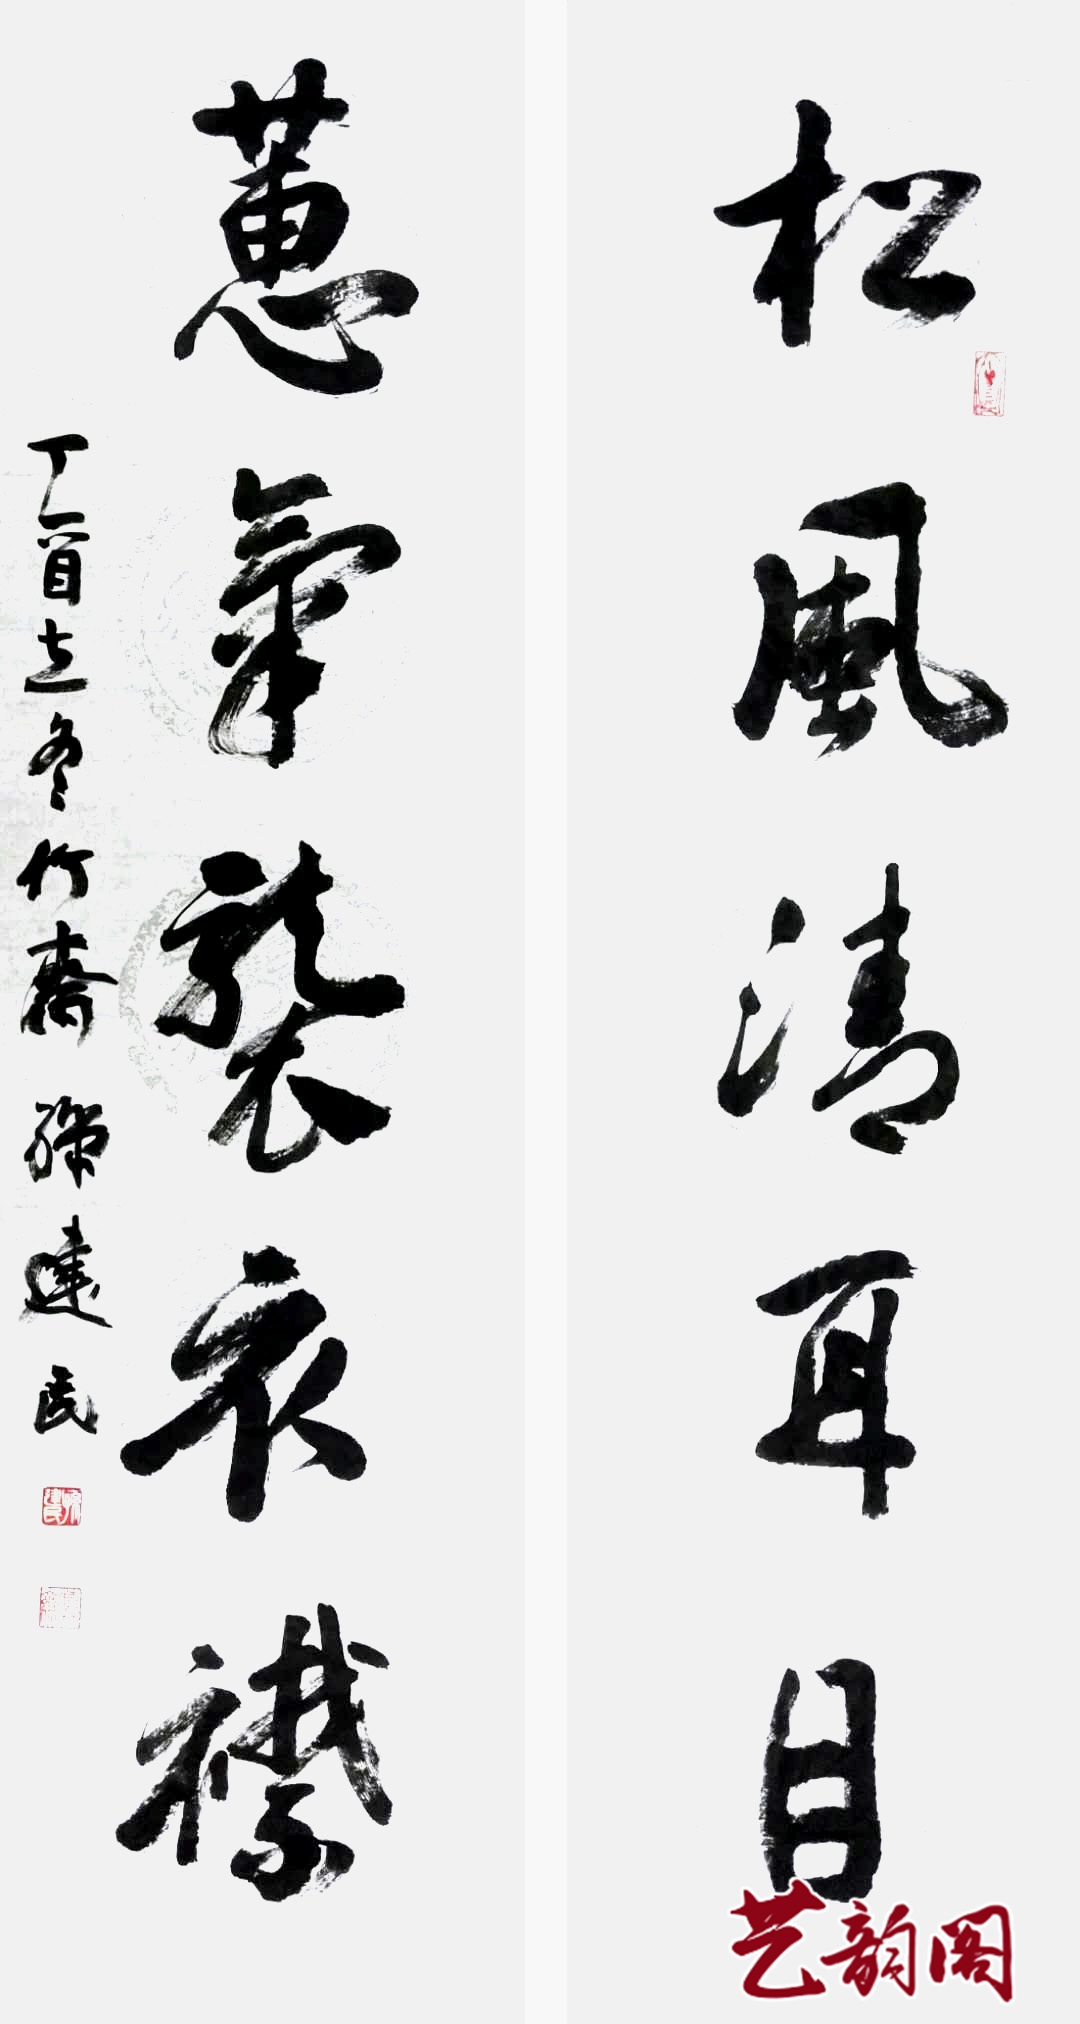 松風清耳目
蕙氣襲衣襟
丁酉立冬竹齋孫建民
艺韵阁